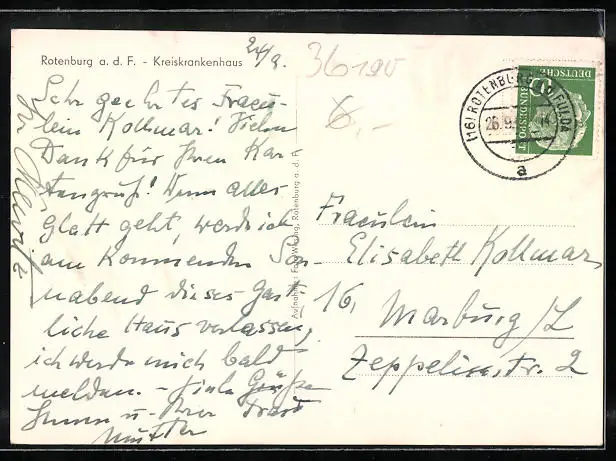 Rotenburg a. d. F. - Kreiskrankenhaus
24/9.
Sehr geehrtes Fräu-
lein Kollmar! Vielen
Dank für Ihren Kar-
tengruß! Wenn alles
glatt geht, werde ich
am kommenden Son-
nabend dieses gast-
liche Haus verlassen,
ich werde mich bald
melden. - Viele Grüße
Ihnen u. Ihrer Frau
Mutter
Ihr
36190
6,-
Rotenburg a. d. F.
(16) ROTENBURG (FULDA
26.9.
a
DEUTSCHE
BUNDESPOST
10
Fräulein
Elisabeth Kollmar
16, Marburg/L
Zeppelinstr. 2